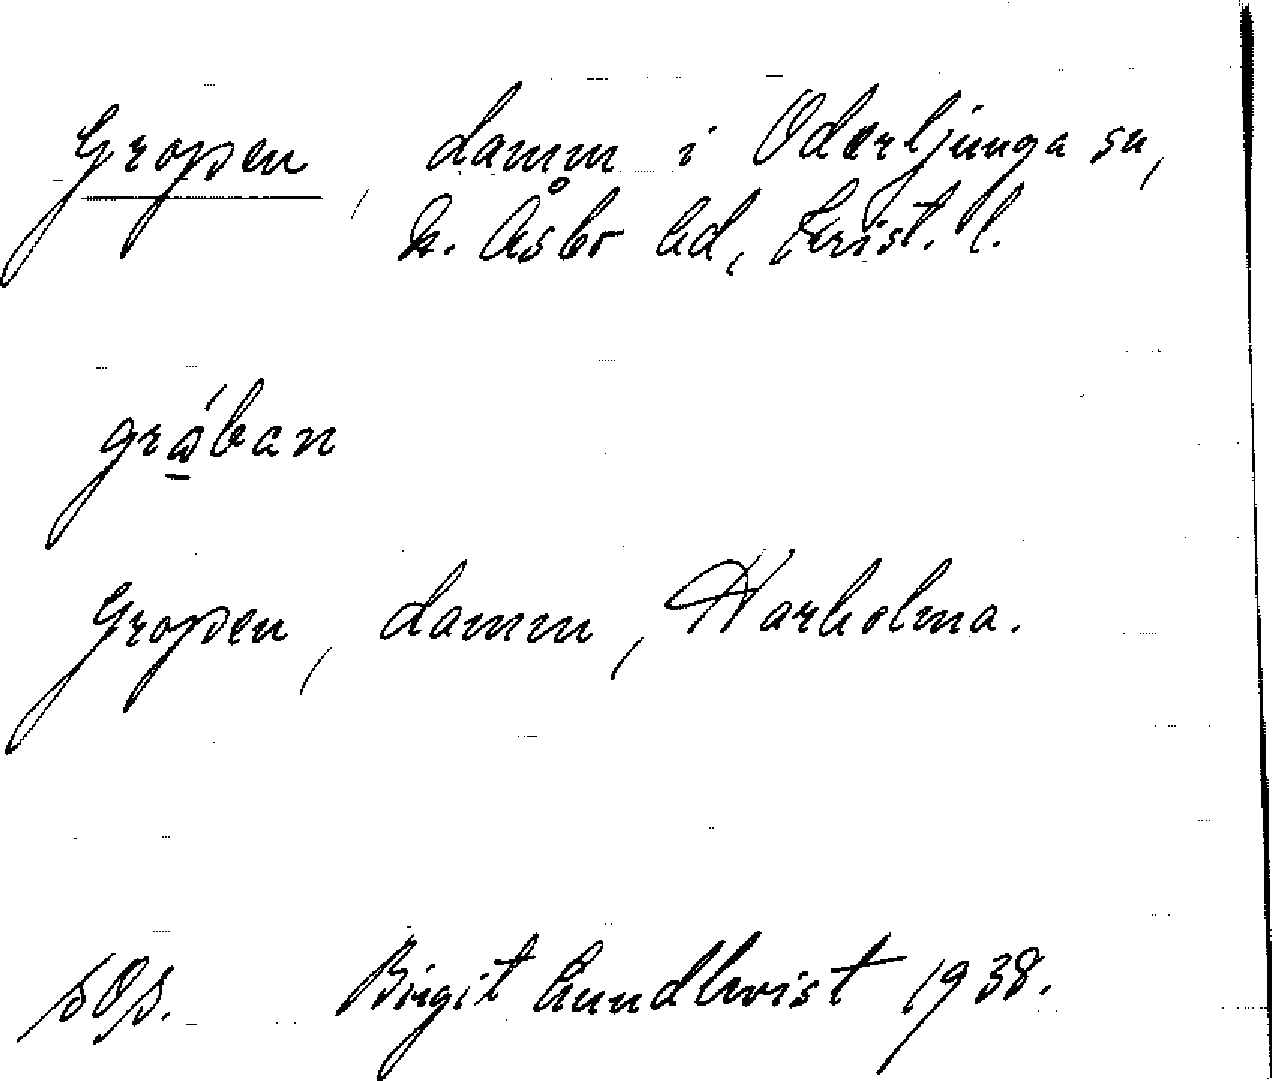 Gropen, damm i Oderljunga sn,
N. Åsbo hd, Krist. l.
gró̱ban
Gropen, damm, Harholma.
Birgit Lundkvist 1938.